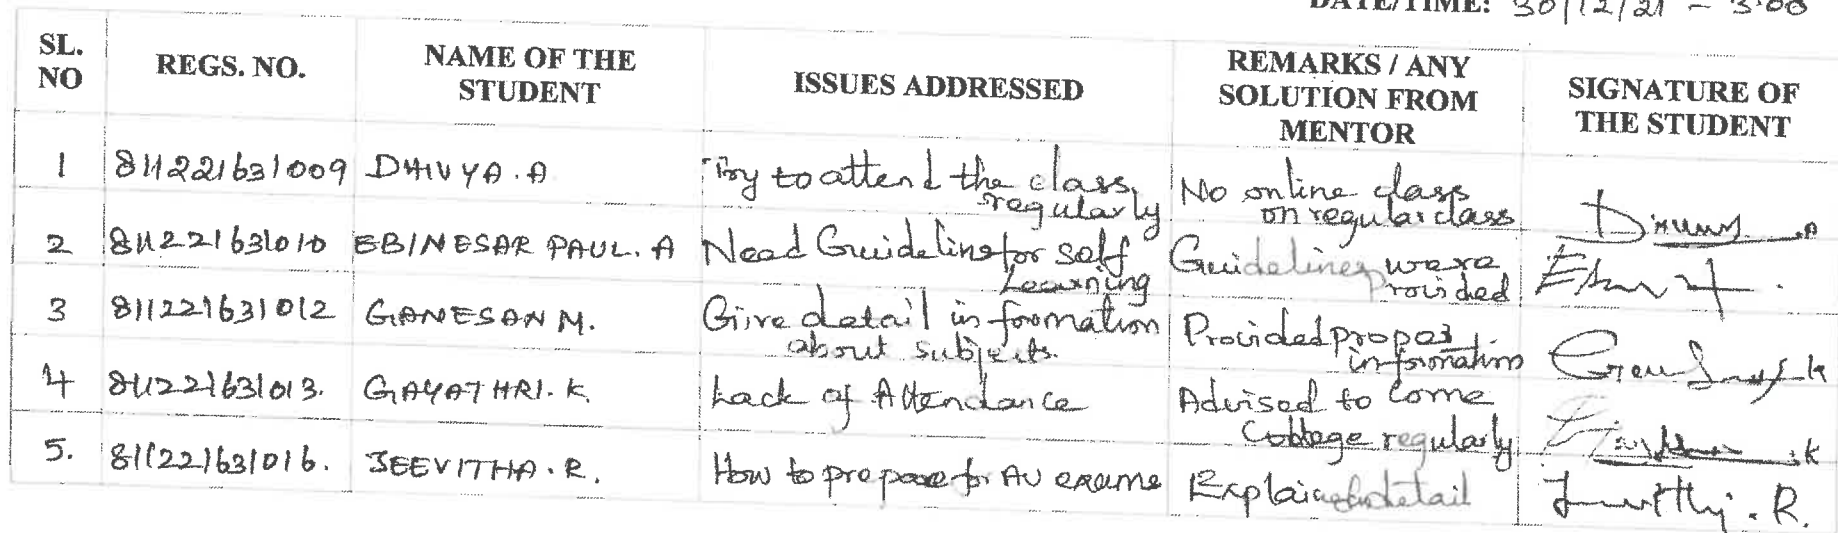 DATE/TIME: 30/12/21 - 3:00
SL. NO REGS. NO. NAME OF THE STUDENT ISSUES ADDRESSED REMARKS / ANY SOLUTION FROM MENTOR SIGNATURE OF THE STUDENT
1 811221631009 DHIVYA. A Try to attend the class, regularly No online class on regular class
2 811221631010 EBINESAR PAUL. A Need Guideline for self Learning Guidelines were rovided
3 811221631012 GANESAN M. Give detail information about subjects. Provided proper information
4 811221631013. GAYATHRI. K. Lack of Attendance Advised to come College regularly
5. 811221631016. JEEVITHA. R. How to prepare for AU exams Explained detail